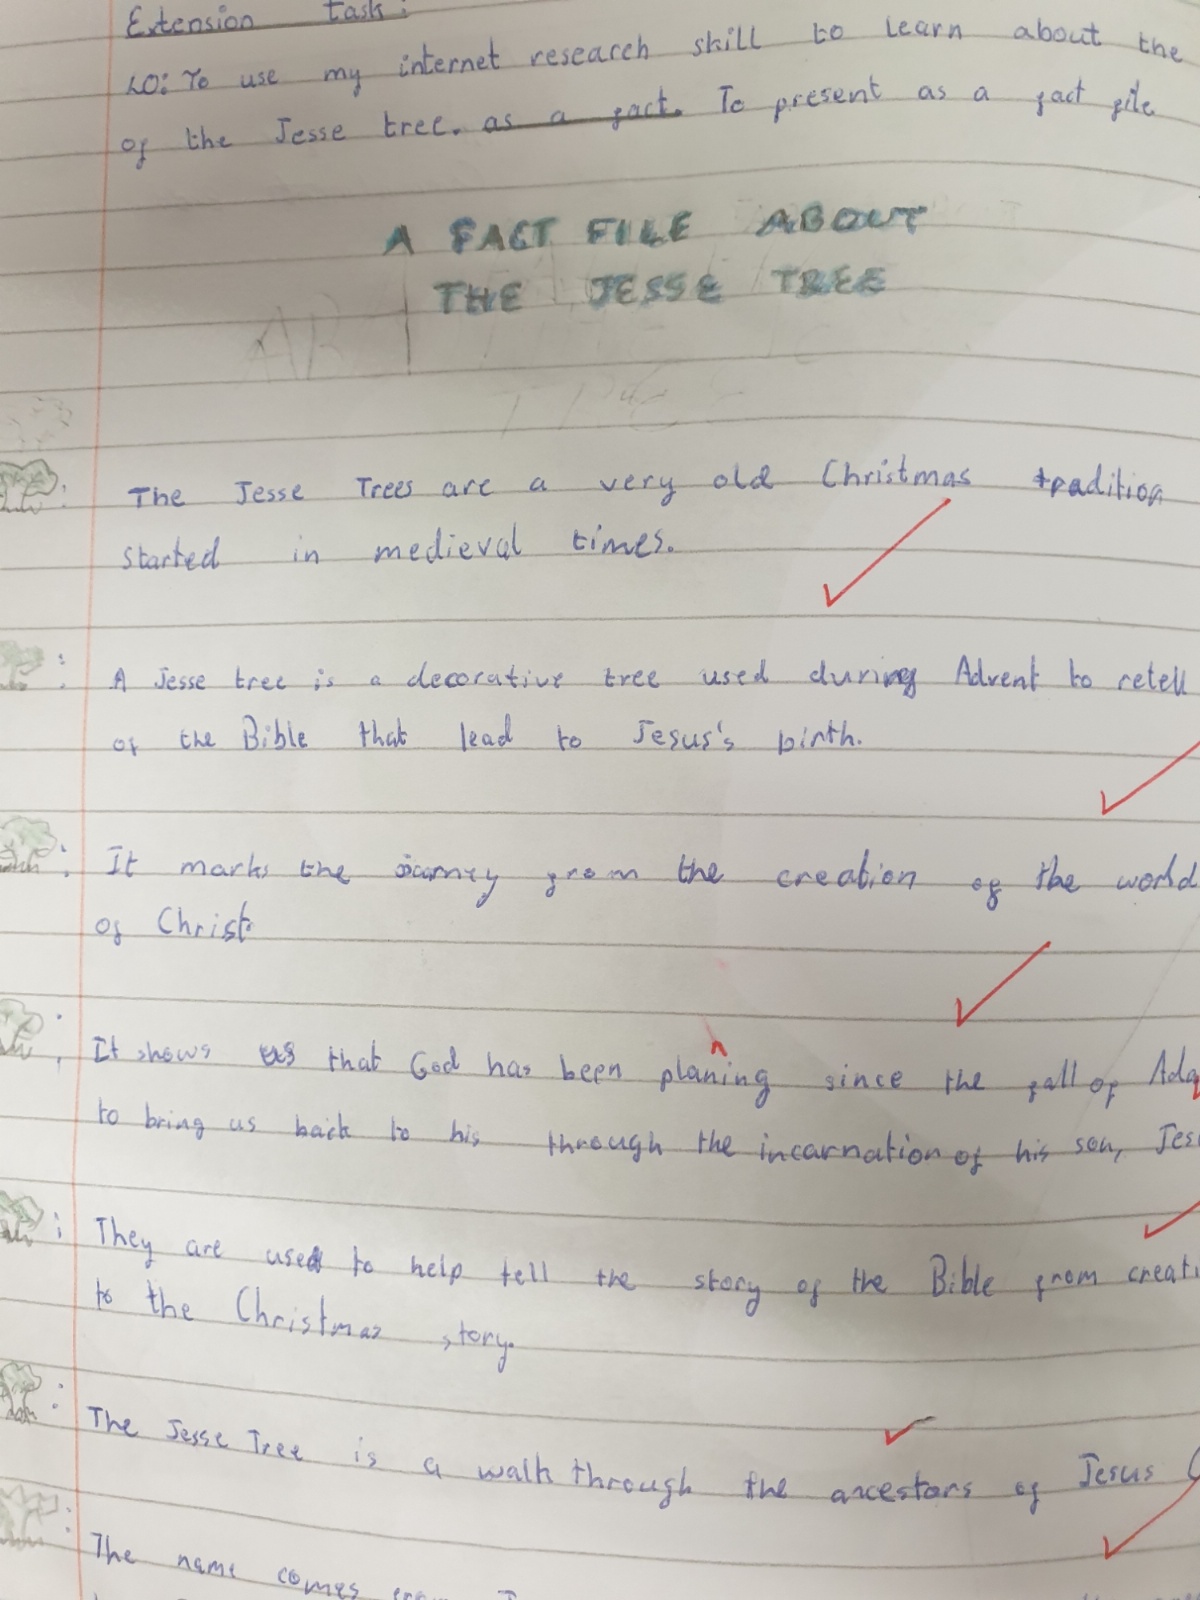 Extension task:
LO: To use my internet research skill to learn about the
of the Jesse tree. as a fact. To present as a fact file
A FACT FILE ABOUT
THE JESSE TREE
The Jesse Trees are a very old Christmas tradition
started in medieval times.
A Jesse tree is a decorative tree used during Advent to retell
of the Bible that lead to Jesus's birth.
It marks the the creation of the world
of Christ
It shows us that God has been planing since the fall of Ada
to bring us back to his through the incarnation of his son, Jes
They are used to help tell the story of the Bible from creati
to the Christmas story.
The Jesse Tree is a walk through the ancestors of Jesus C
The name comes from